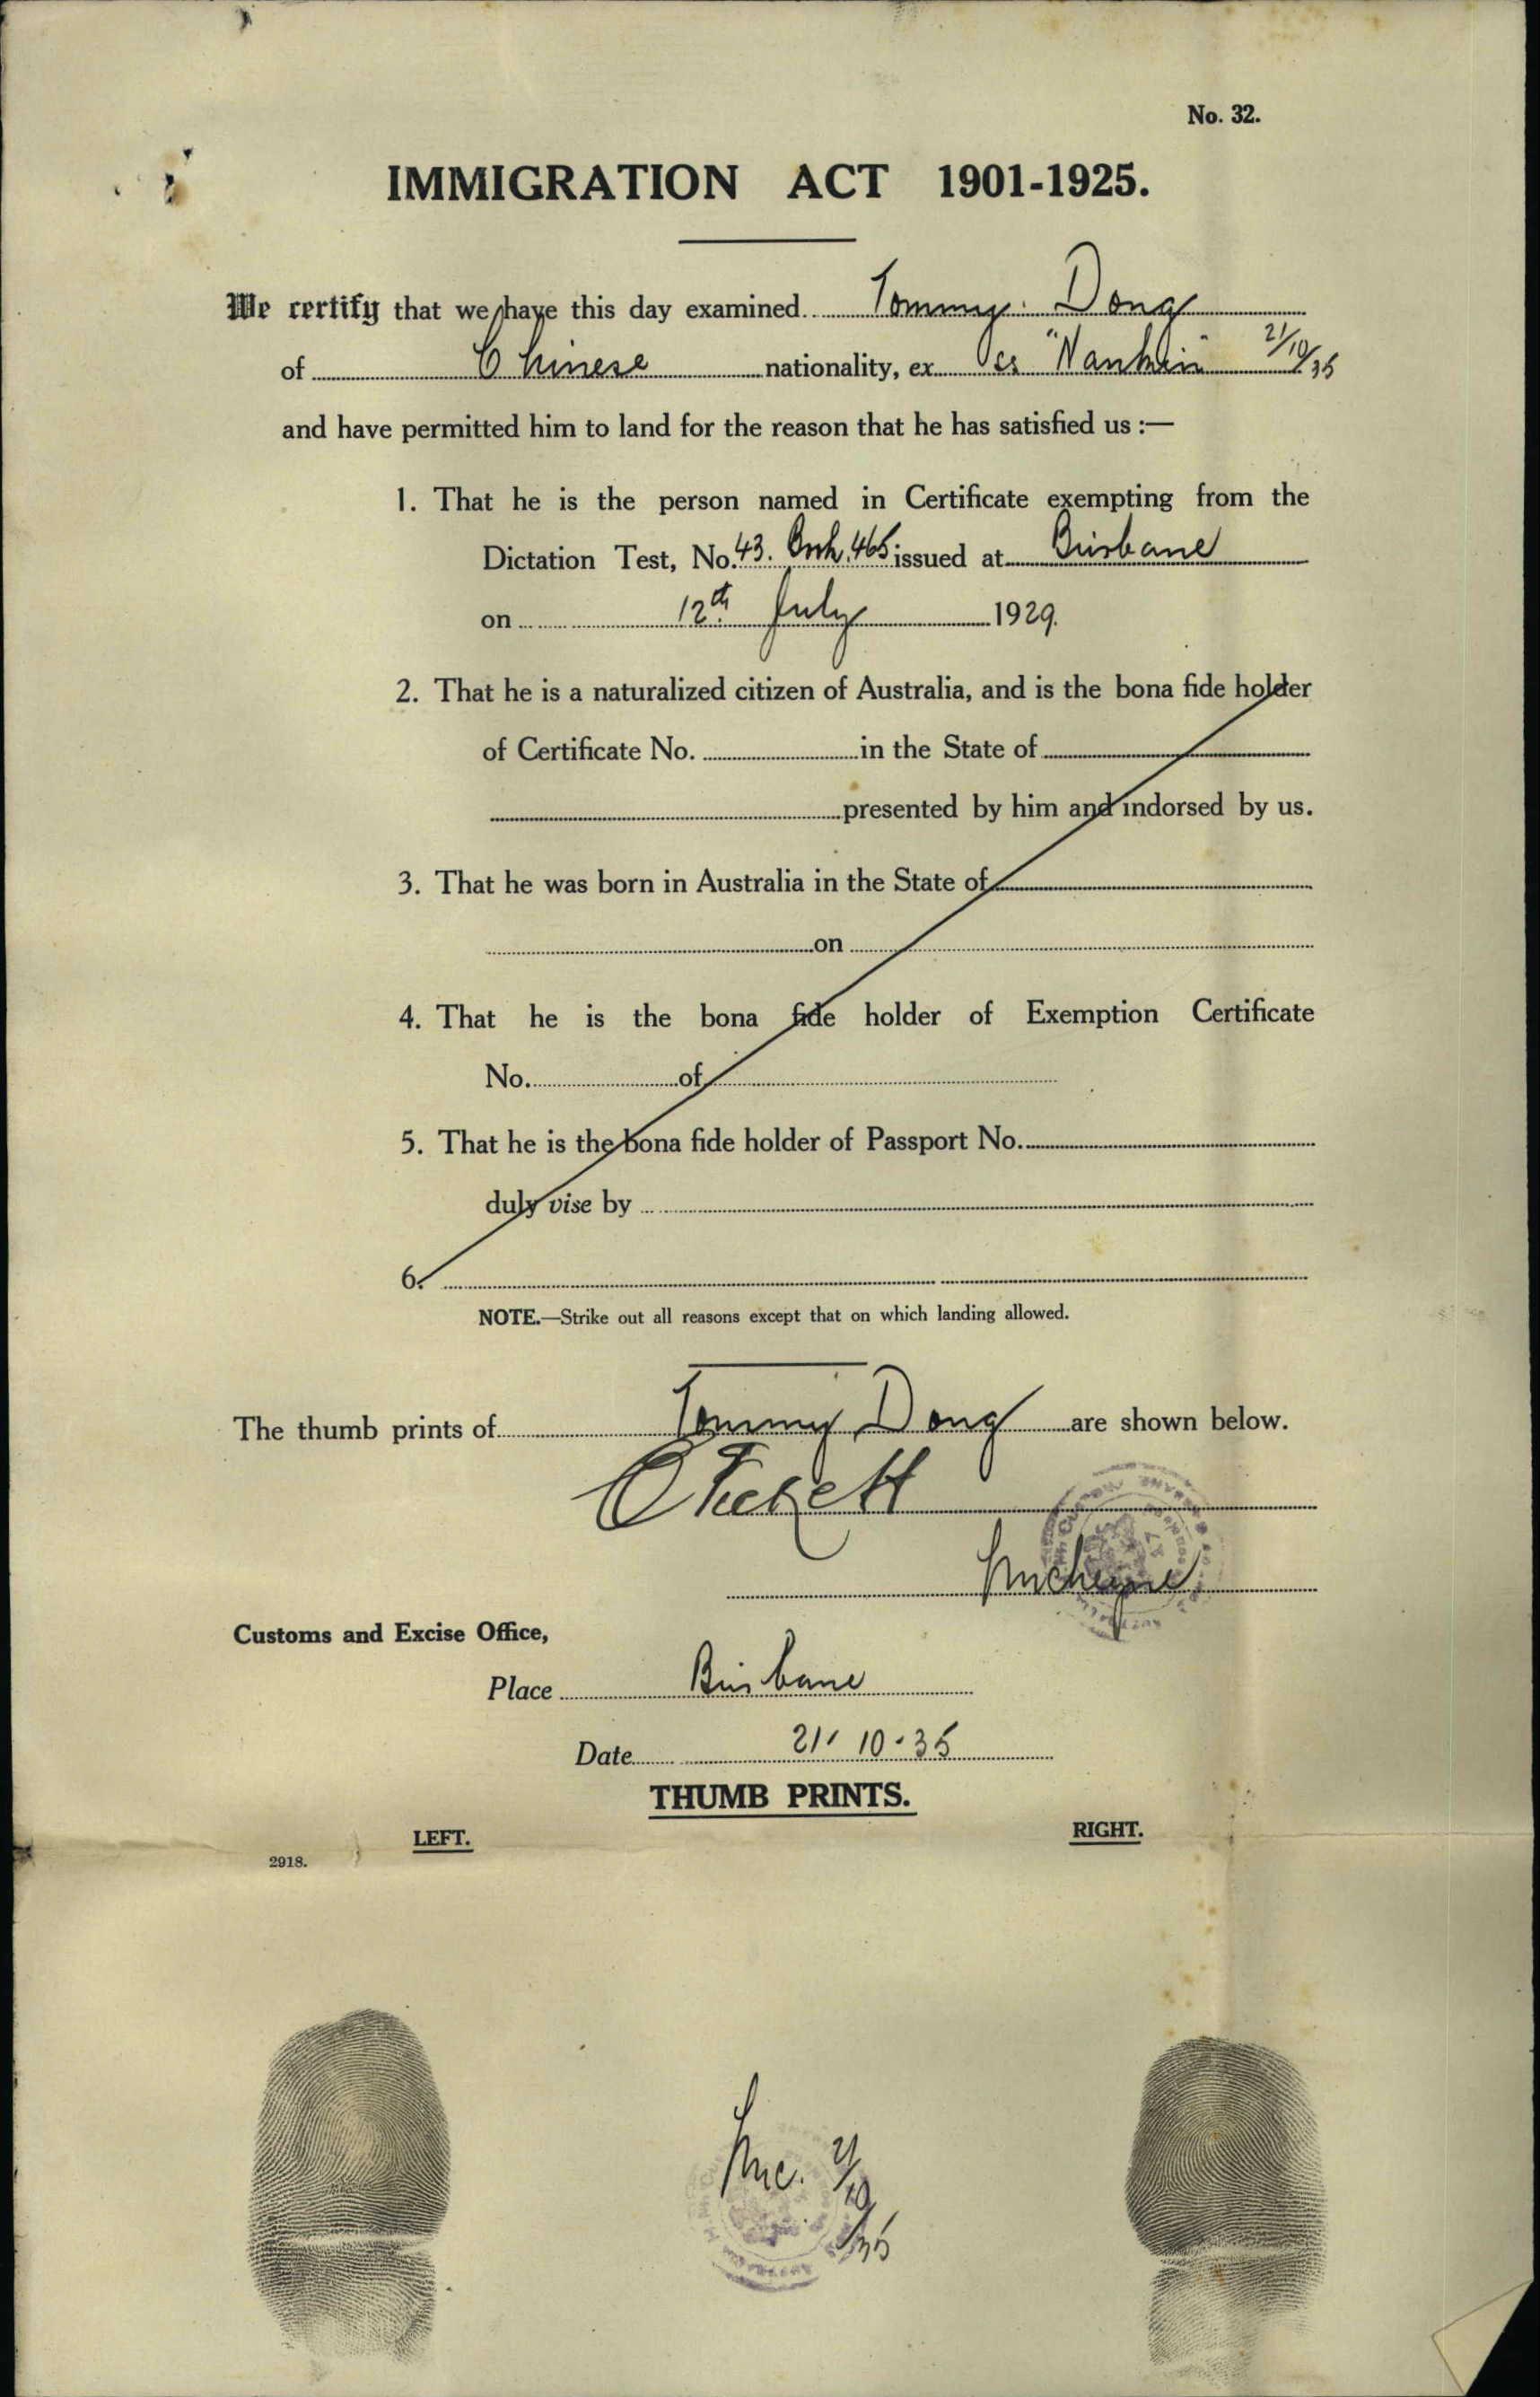 No. 32.
IMMIGRATION ACT 1901-1925.
We certify that we have this day examined Tommy Dong
of Chinese nationality, ex "Nankin" 21/10/35
and have permitted him to land for the reason that he has satisfied us :—
1. That he is the person named in Certificate exempting from the
Dictation Test, No. 43. 465 issued at Brisbane
on 12th July 1929.
2. That he is a naturalized citizen of Australia, and is the bona fide holder
of Certificate No. in the State of
presented by him and indorsed by us.
3. That he was born in Australia in the State of
on
4. That he is the bona fide holder of Exemption Certificate
No. of
5. That he is the bona fide holder of Passport No.
duly vise by
6.
NOTE.—Strike out all reasons except that on which landing allowed.
The thumb prints of Tommy Dong are shown below.
Customs and Excise Office,
Place Brisbane
Date 21 10 · 35
THUMB PRINTS.
LEFT.
RIGHT.
2918.
21/10/35